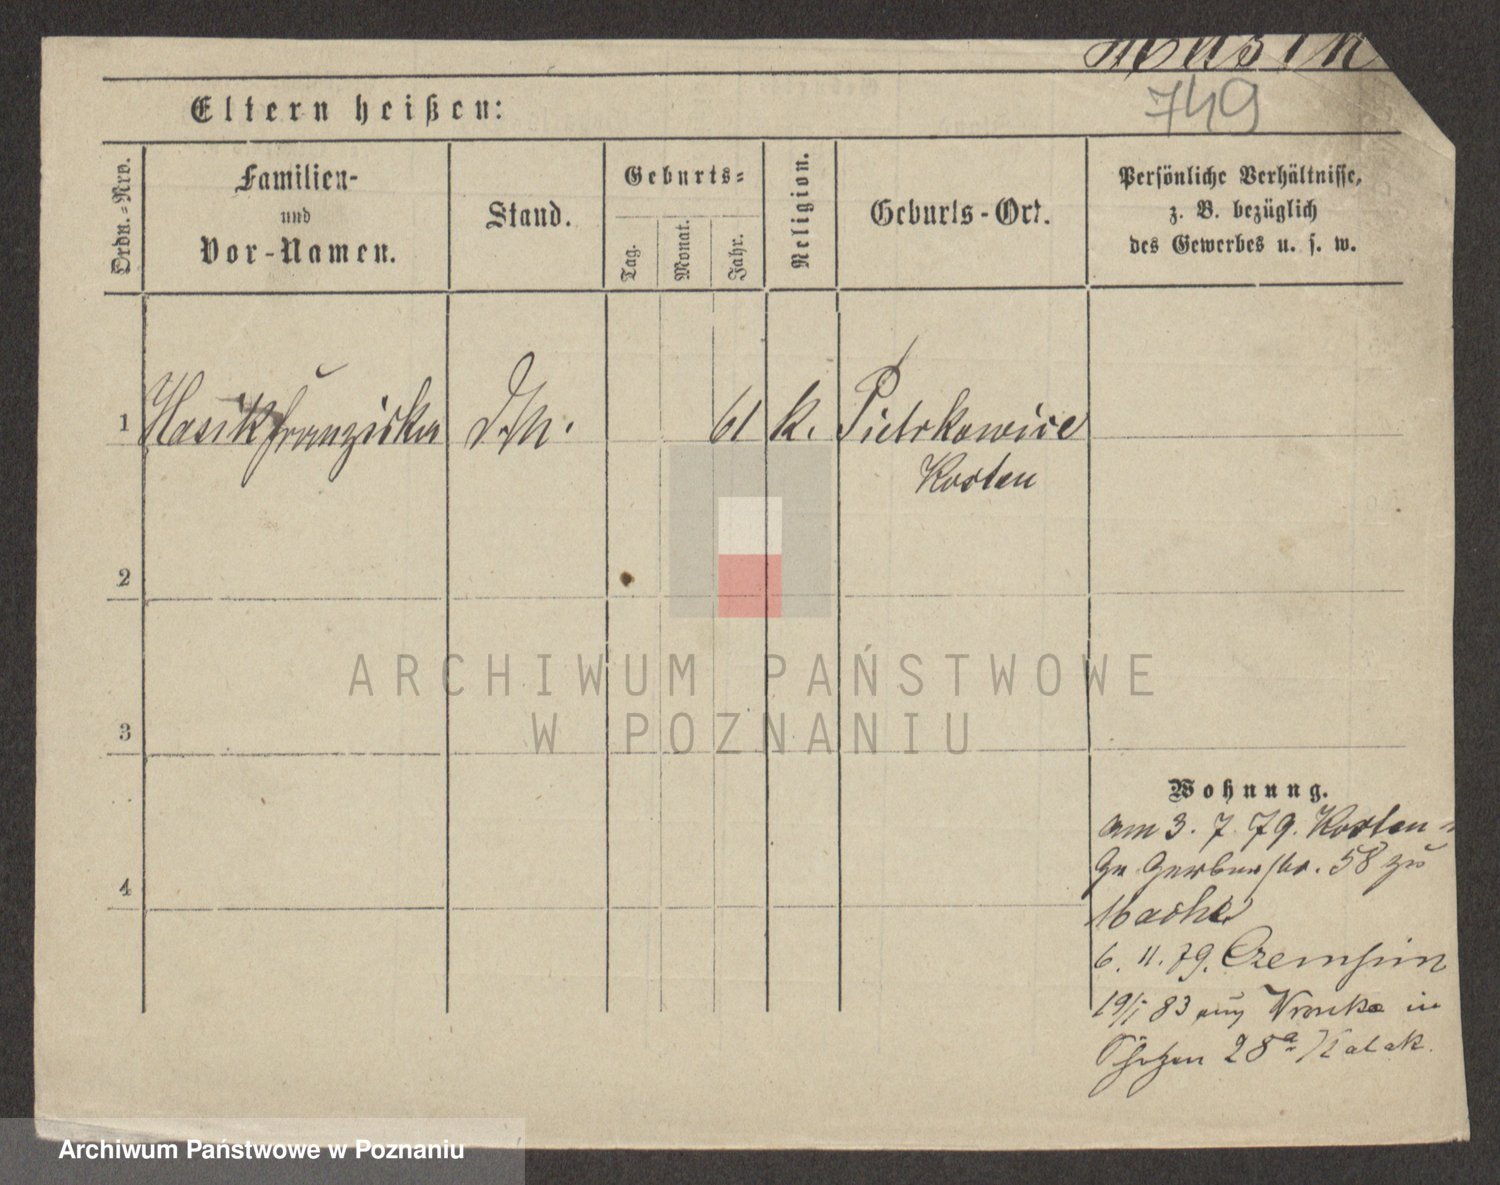 749
Eltern heißen:
Ordn.-Nro.
Familien-
und
Vor-Namen.
Stand.
Geburts-
Tag.
Monat.
Jahr.
Religion.
Geburts-Ort.
Persönliche Verhältnisse,
z. B. bezüglich
des Gewerbes u. s. w.
1 Franziska 61 k. Pietrkowice
Kosten
2
3
4
Wohnung.
am 3. 7. 79. Kosten
Gr. Gerberstr. 58 zu
6. 11. 79. Czempin
83 Wronke in
28a
ARCHIWUM PAŃSTWOWE
W POZNANIU
Archiwum Państwowe w Poznaniu